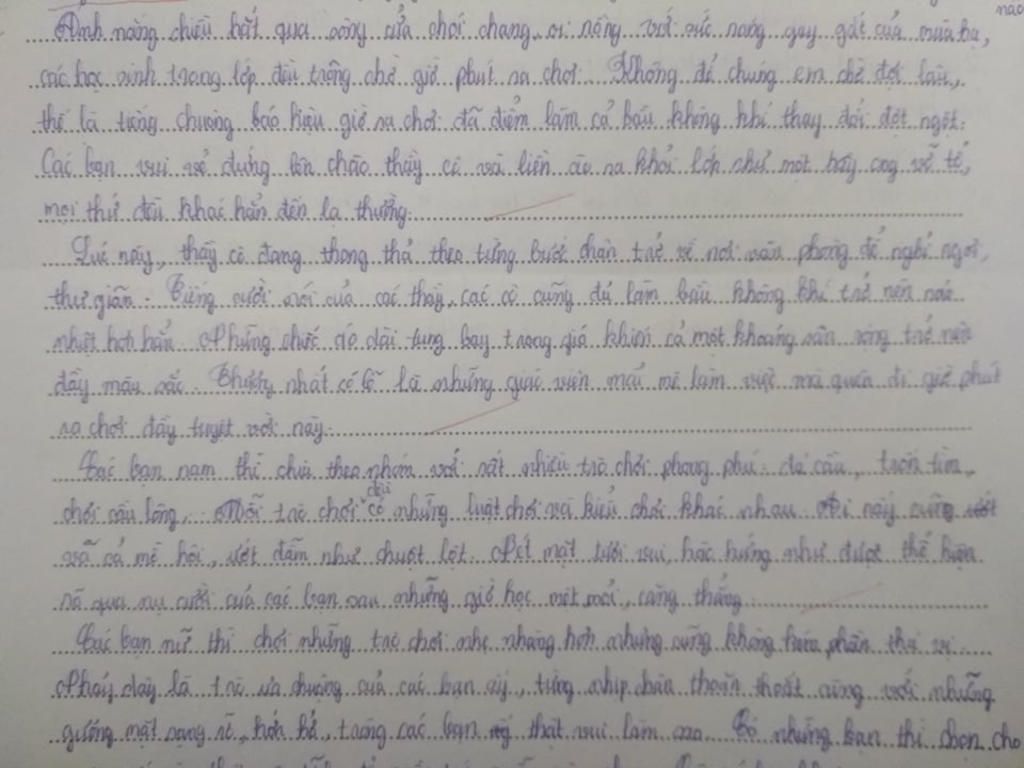 nào
Ánh nắng chiều hắt qua song cửa chói chang, oi nồng với sức nóng gay gắt của mùa hạ,
các học sinh trong lớp đều trông chờ giờ phút ra chơi. Không để chúng em chờ đợi lâu,
thế là tiếng chuông báo hiệu giờ ra chơi đã điểm làm cả bầu không khí thay đổi đột ngột.
Các bạn vui vẻ đứng lên chào thầy cô và liền ùa ra khỏi lớp như một bầy ong vỡ tổ,
mọi thứ đều khác hẳn đến lạ thường.
Lúc này, thầy cô đang thong thả theo từng bước chân trở về nơi văn phòng để nghỉ ngơi,
thư giãn. Tiếng cười nói của các thầy, các cô cũng đủ làm bầu không khí trở nên náo
nhiệt hơn hẳn. Những chiếc áo dài tung bay trong gió khiến cả một khoảng sân rộng trở nên
đầy màu sắc. Thương nhất có lẽ là những giáo viên mải mê làm việc mà quên đi giờ phút
ra chơi đầy tuyệt vời này.
Các bạn nam thì chia theo nhóm với rất nhiều trò chơi phong phú: đá cầu, trốn tìm,
chơi cầu lông,... Mỗi trò chơi đều có những luật chơi và kiểu chơi khác nhau. Ai nấy cũng
vã cả mồ hôi, ướt đẫm như chuột lột. Nét mặt tươi vui, hào hứng như được thể hiện
rõ qua nụ cười của các bạn sau những giờ học mệt mỏi, căng thẳng.
Các bạn nữ thì chơi những trò chơi nhẹ nhàng hơn nhưng cũng không kém phần thú vị.
Nhảy dây là trò ưa chuộng của các bạn ấy, từng nhịp chân thoăn thoắt cùng với những
gương mặt rạng rỡ, hớn hở, trông các bạn ấy thật vui làm sao. Có những bạn thì chọn cho